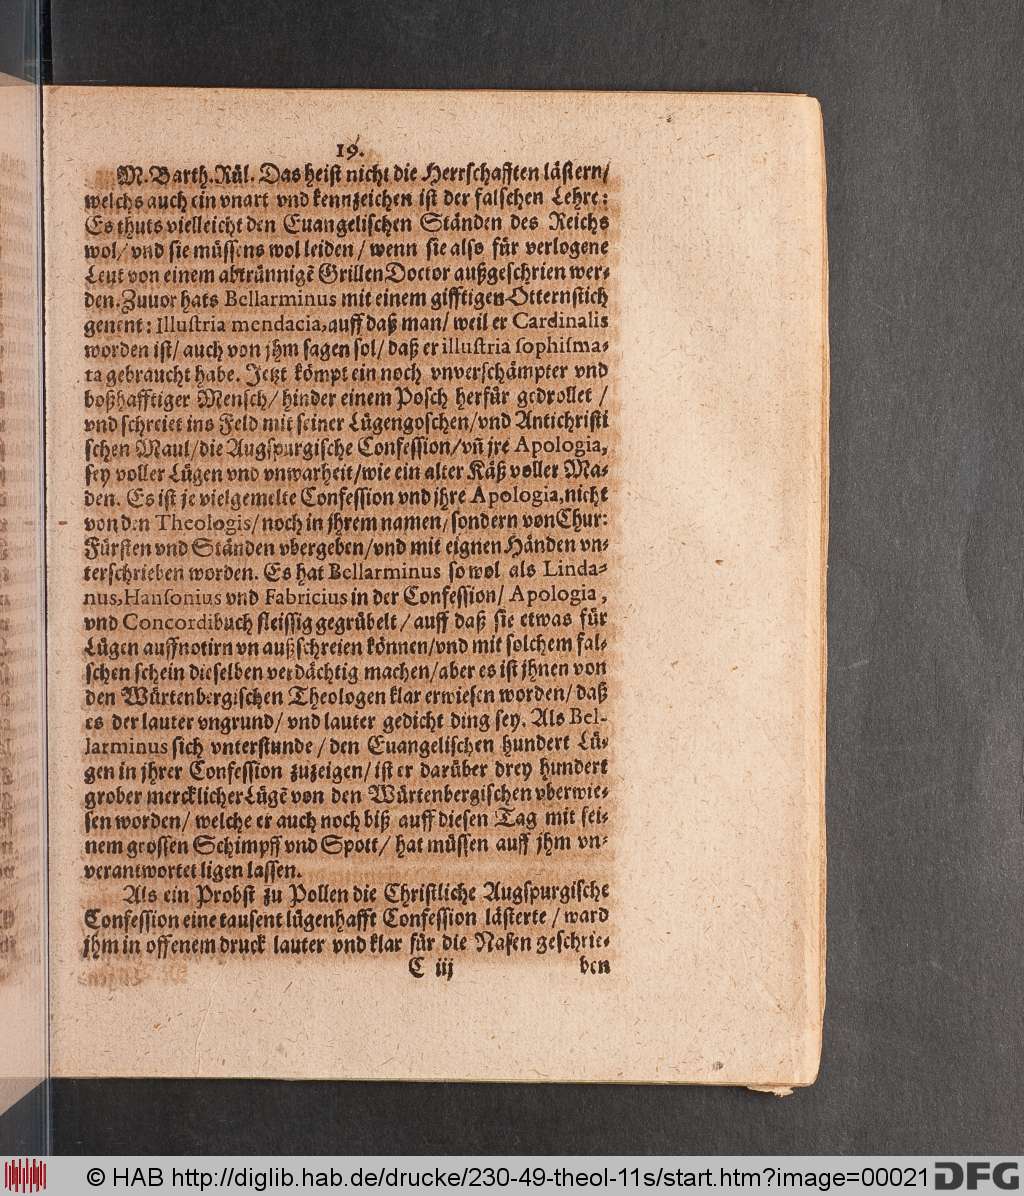 19.
M. Barth. Rül. Das heist nicht die Herrschafften lästern/
welchs auch ein vnart vnd kennzeichen ist der falschen Lehre:
Es thuts vielleicht den Euangelischen Ständen des Reichs
wol/ vnd sie müssens wol leiden / wenn sie also für verlogene
Leut von einem abtrünnigẽ Grillen Doctor außgeschrien wer⸗
den. Zuuor hats Bellarminus mit einem gifftigen Otternstich
genent: Illuſtria mendacia, auff daß man/ weil er Cardinalis
worden ist/ auch von jhm sagen sol/ daß er illuſtria ſophiſma-
ta gebraucht habe. Jetzt kömpt ein noch vnverschämpter vnd
boßhafftiger Mensch/ hinder einem Posch herfür gedrollet /
vnd schreiet ins Feld mit seiner Lügengoschen/ vnd Antichristi
schen Maul/ die Augspurgische Confession/ vñ jre Apologia,
sey voller Lügen vnd vnwarheit/ wie ein alter Käß voller Ma⸗
den. Es ist je vielgemelte Confession vnd jhre Apologia, nicht
von den Theologis/ noch in jhrem namen/ sondern von Chur:
Fürsten vnd Ständen vbergeben/ vnd mit eignen Händen vn⸗
terschrieben worden. Es hat Bellarminus so wol als Linda-
nus, Hanſonius vnd Fabricius in der Confession/ Apologia,
vnd Concordibuch fleissig gegrübelt / auff daß sie etwas für
Lügen auffnotirn vn außschreien können/ vnd mit solchem fal⸗
schen schein dieselben verdächtig machen/ aber es ist jhnen von
den Würtenbergischen Theologen klar erwiesen worden/ daß
es der lauter vngrund/ vnd lauter gedicht ding sey. Als Bel-
larminus sich vnterstunde / den Euangelischen hundert Lü⸗
gen in jhrer Confession zuzeigen/ ist er darüber drey hundert
grober mercklicher Lügẽ von den Würtenbergischen vberwie⸗
sen worden/ welche er auch noch biß auff diesen Tag mit sei⸗
nem grosten Schimpff vnd Spott/ hat müssen auff jhm vn⸗
verantwortet ligen lassen.
Als ein Probst zu Pollen die Christliche Augspurgische
Confession eine tausent lügenhafft Confession lästerte / ward
jhm in offenem druck lauter vnd klar für die Nasen geschrie⸗
C iij ben
© HAB http://diglib.hab.de/drucke/230-49-theol-11s/start.htm?image=00021 DFG